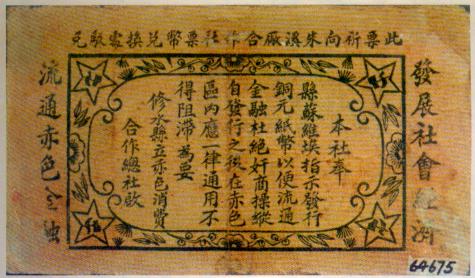 此票祈向朱溪厰合作社票幣兑換處取兑
發展社會經濟
本社奉
縣蘇維埃指示發行
銅元紙幣以便流通
金融杜絕奸商操縱
自發行之後在赤色
區內應一律通用不
得阻滯為要
修水縣立赤色消費
合作總社啟
流通赤色金融
64675